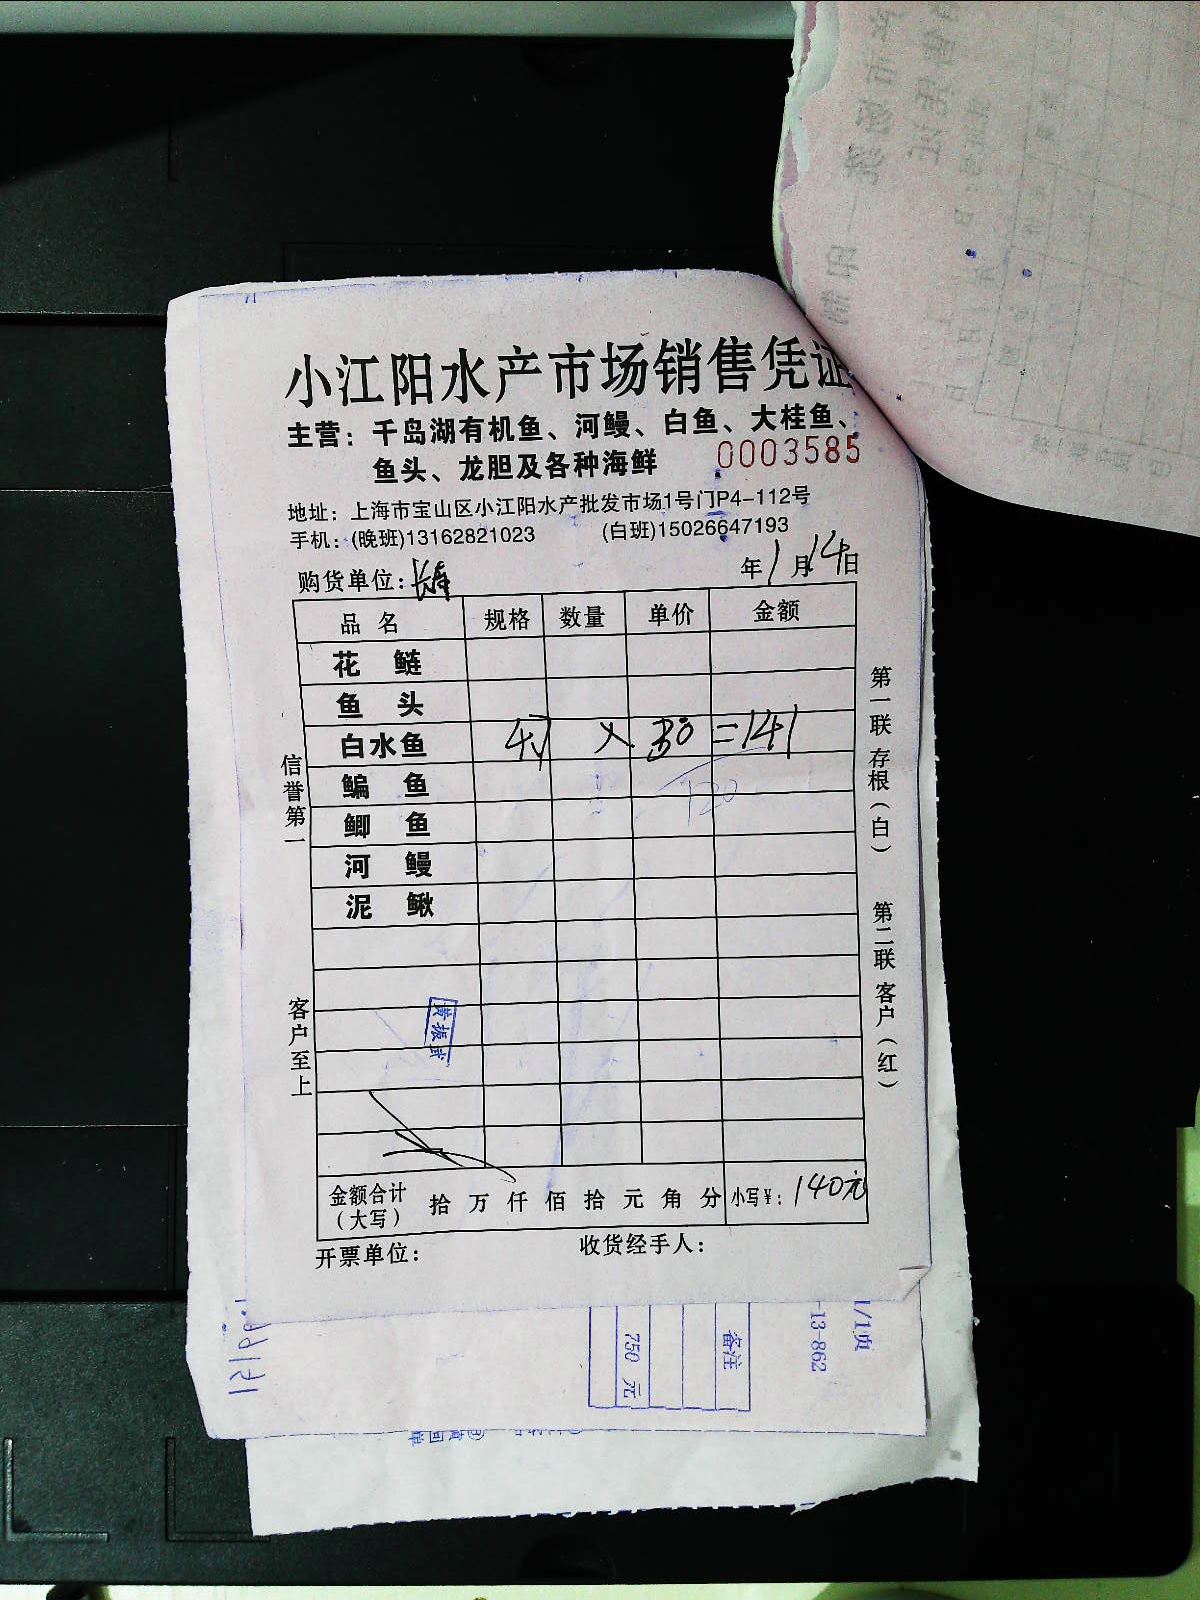 小江阳水产市场销售凭证
主营：千岛湖有机鱼、河鳗、白鱼、大桂鱼、
鱼头、龙胆及各种海鲜
0003585
地址：上海市宝山区小江阳水产批发市场1号门P4-112号
手机：(晚班)13162821023 (白班)15026647193
购货单位： 年1月14日
品名 规格 数量 单价 金额
花鲢
鱼头
白水鱼 × 30 =141
鳊鱼 120
鲫鱼
河鳗
泥鳅
信誉第一
客户至上
第一联 存根（白）
第二联 客户（红）
金额合计（大写） 拾 万 仟 佰 拾 元 角 分 小写¥：140元
开票单位： 收货经手人：
1/1页
-13-862
备注
750 元